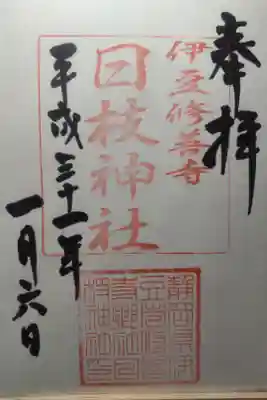 奉拝
伊豆修善寺
日枝神社
平成三十一年
一月六日